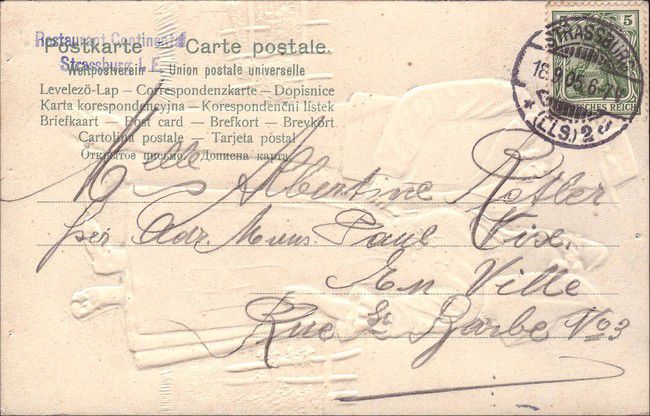 Restaurant Continental
Strassburg i. E.
Postkarte — Carte postale.
Weltpostverein — Union postale universelle
Levelező-Lap — Correspondenzkarte — Dopisnice
Karta korespondencyjna — Korespondenční lístek
Briefkaart — Post card — Brefkort — Brevkort
Cartolina postale — Tarjeta postal
Открытое письмо — Дописна карта
5
DEUTSCHES REICH
STRASSBURG
18.9.05.6-7N
* (ELS.) 2
Melle Albertine Retler
per Adr. Mons. Paul Vix.
En Ville
Rue Ste Barbe No 3